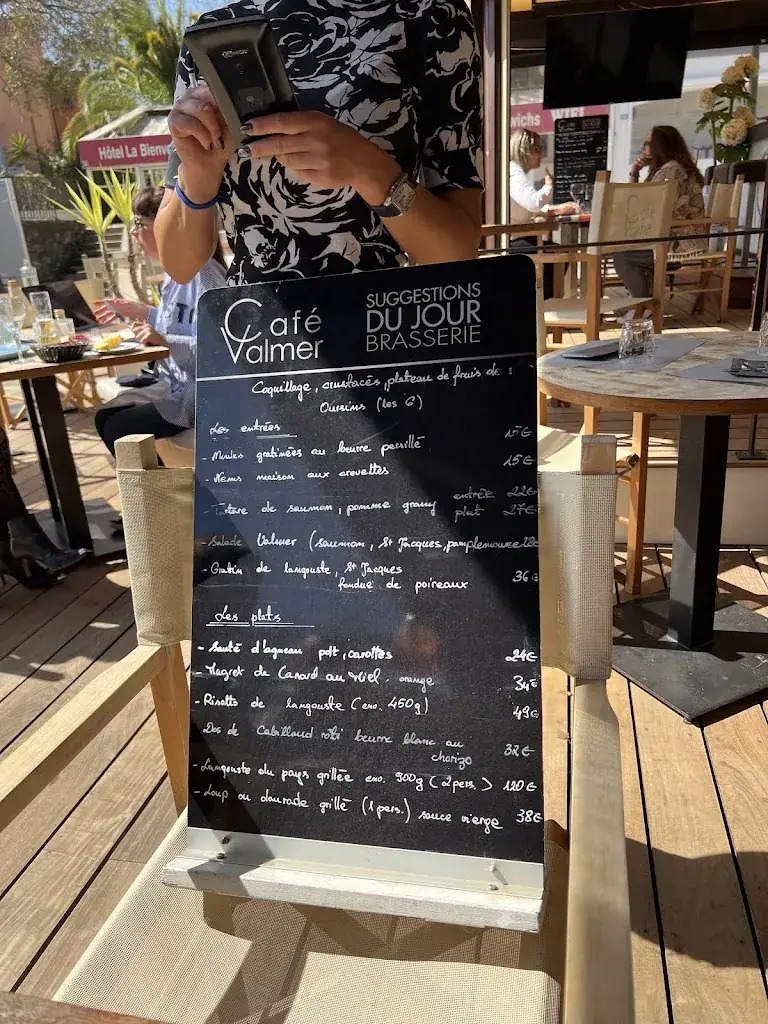 Hôtel La Bienve
wichs WIFI
Café
Valmer
Café
Valmer
SUGGESTIONS
DU JOUR
BRASSERIE
Coquillage, crustacés, plateau de fruis de :
Oursins (les 6)
Les entrées
- Moules gratinées au beurre persillé 15€
- Nems maison aux crevettes 15€
- Tartare de saumon, pomme grany entrée 22€
plat 27€
- Salade Valmer (saumon, St Jacques, pamplemousse
- Gratin de langouste, St Jacques
fondue de poireaux 36€
Les plats
- Sauté d'agneau pdt, carottes 24€
- Magret de Canard au Miel. orange 34€
- Risotto de langouste (env. 450g) 49€
Dos de Cabillaud rôti beurre blanc au
chorizo 32€
- Langouste du pays grillée env. 900g (2 pers.) 120€
- Loup ou daurade grillé (1 pers.) sauce vierge 38€